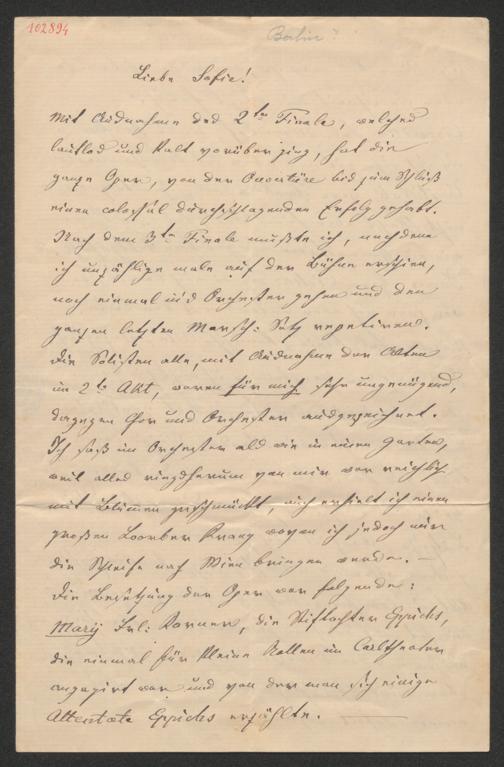 102894
Berlin?
Liebe Sofie!
Mit Ausnahme des 2ten Finale, welches
lautlos und kalt vorüber ging, hat die
ganze Oper, von der Ouverture bis zum Schluß
einen colossal durchschlagenden Erfolg gehabt.
Nach dem 3ten Finale mußte ich, nachdem
ich unzählige male auf der Bühne erschien,
noch einmal in's Orchester gehen und den
ganzen letzten Marsch: Satz repetiren.
Die Solisten alle, mit Ausnahme der
im 2ten Akt, waren für mich sehr ungenügend,
dagegen Chor und Orchester ausgezeichnet.
Ich saß im Orchester als wie in einem Garten,
weil alles ringsherum von mir war reichlich
mit Blumen geschmückt, auch erhielt ich einen
großen Loorber Kranz wovon ich jedoch nur
die Schleife nach Wien bringen werde. —
Die Besetzung der Oper war folgende:
Mary Frl: Korner, die Stieftochter Eppichs,
die einmal für kleine Rollen im Carltheater
engagirt war und von der man sich einige
Attentate Eppichs erzählte.